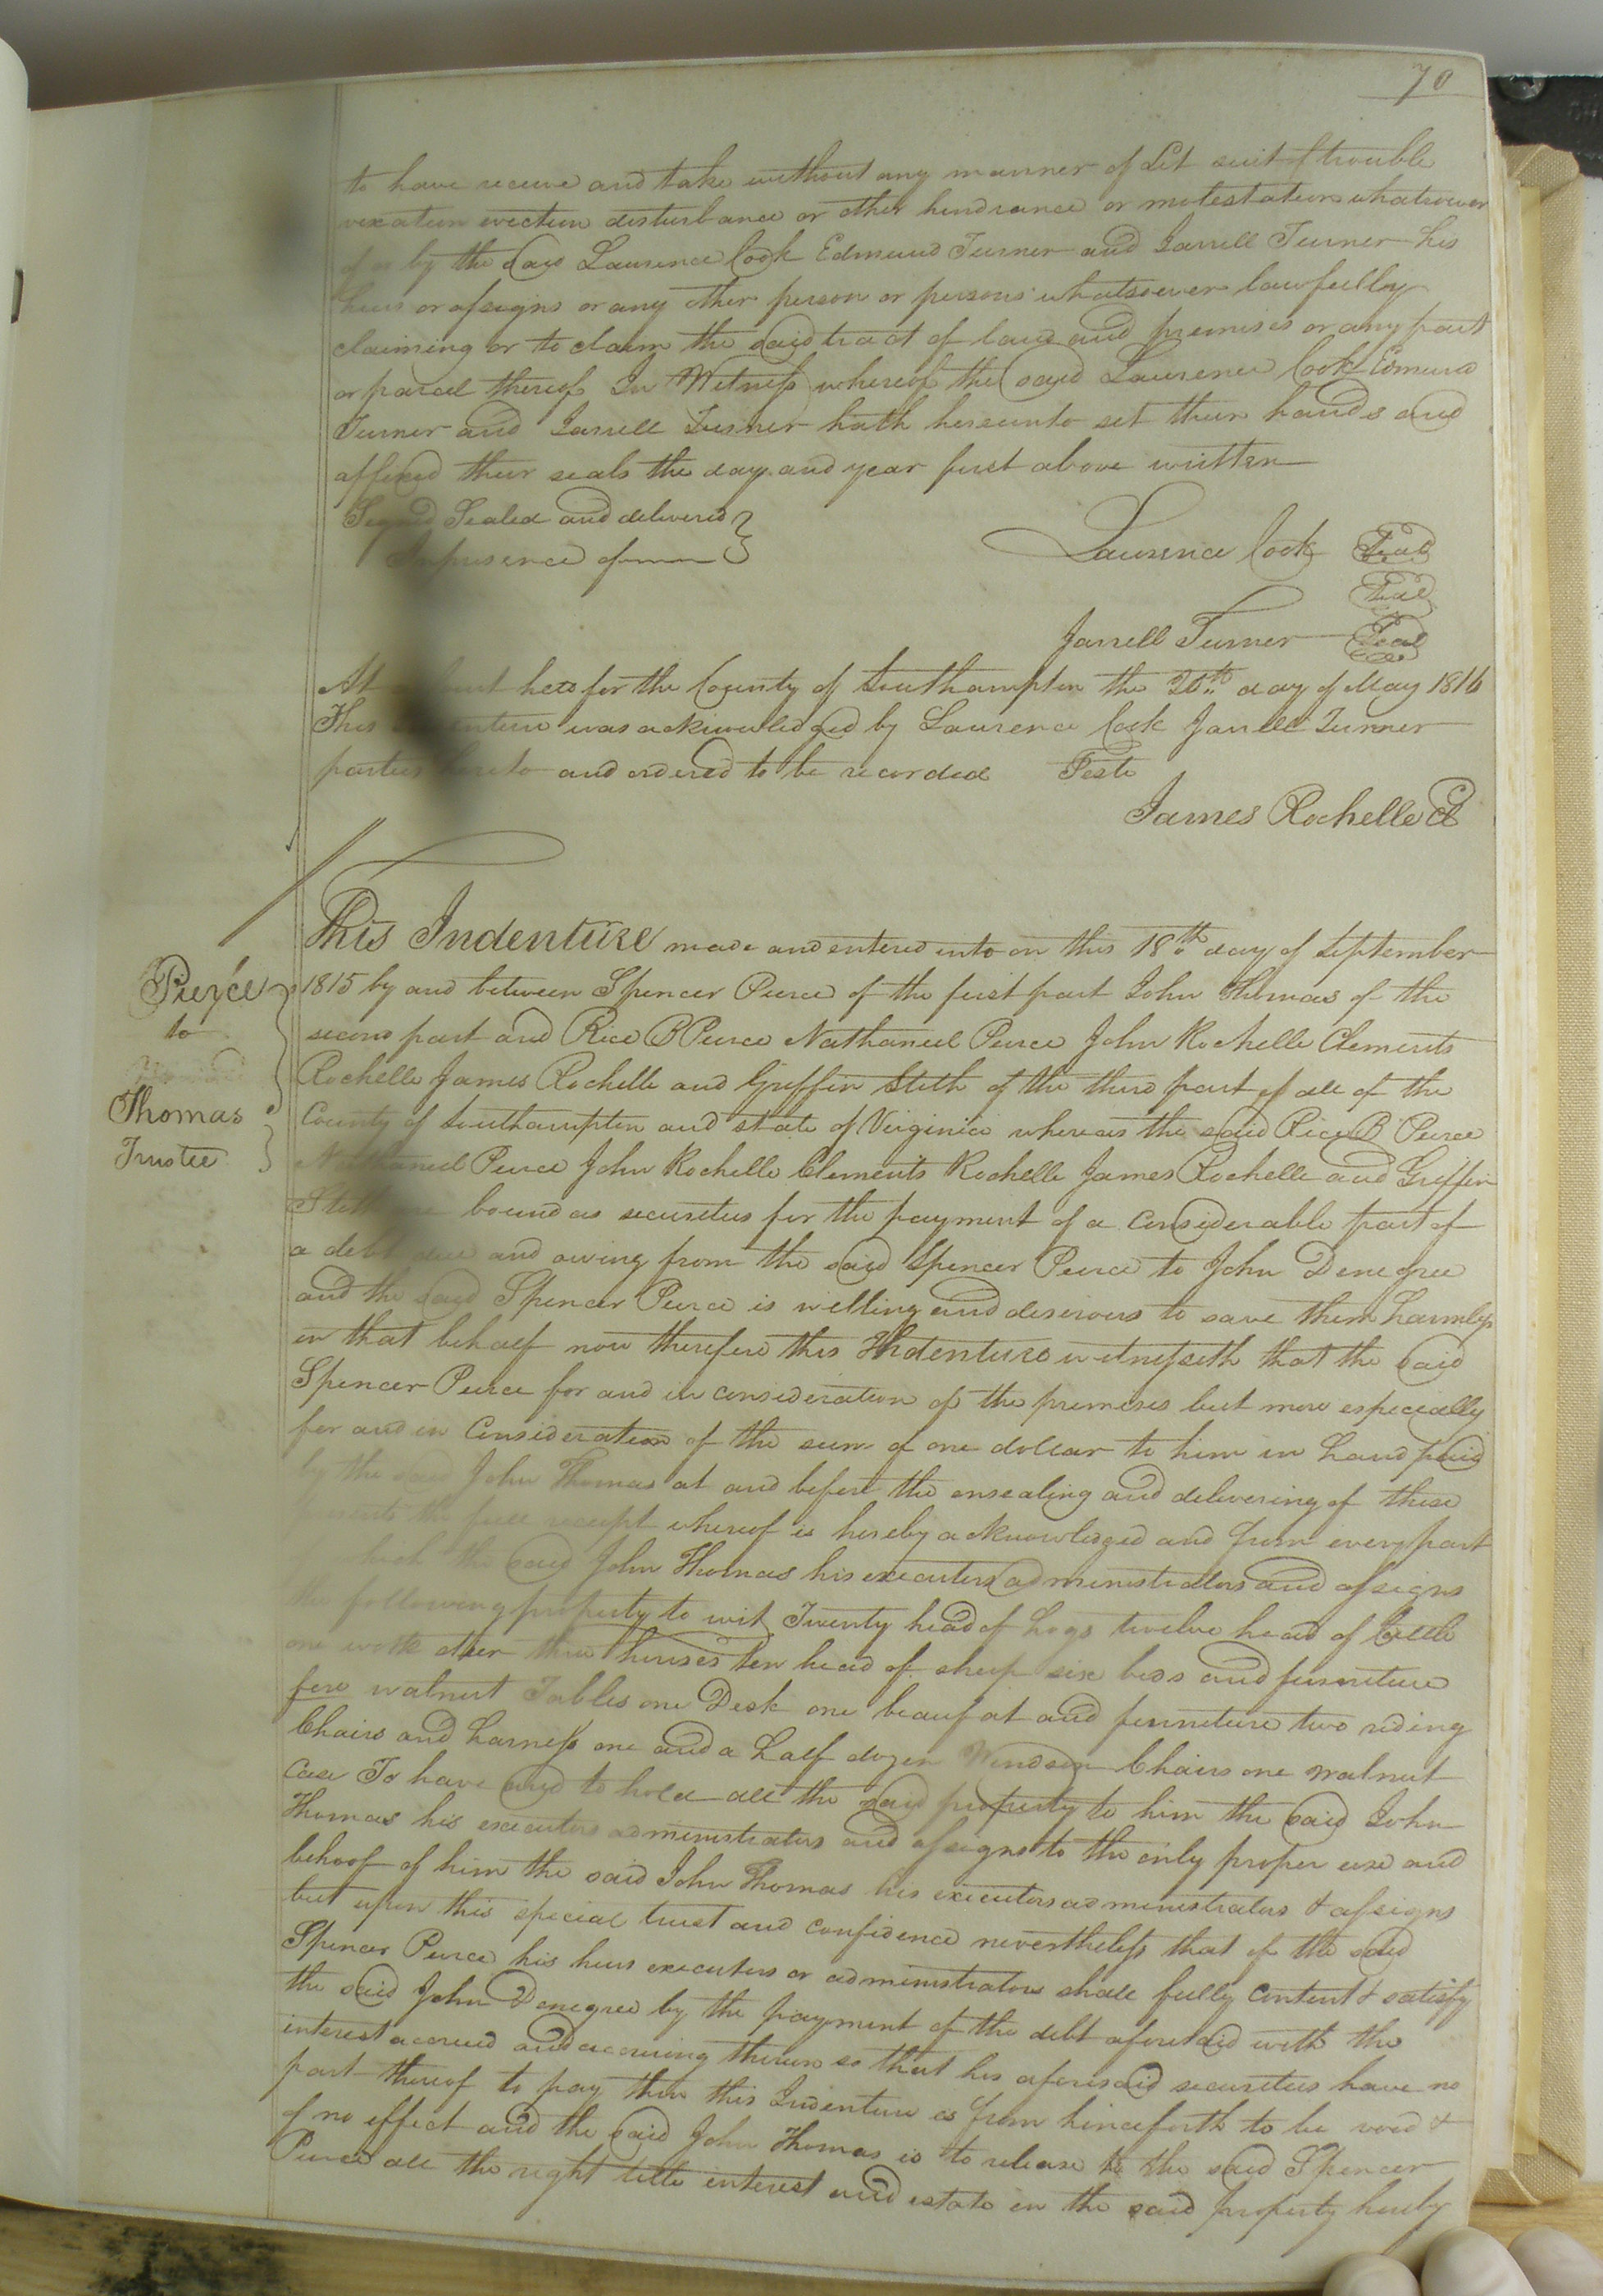 70
to have receive and take without any manner of Let suit trouble
vexation eviction disturbance or other hindrance or molestation whatsoever
of or by the said Laurence Cook Edmund Turner and Jarrell Turner his
heirs or assigns or any other person or persons whatsoever lawfully
claiming or to claim the said tract of land and premises or any part
or parcel thereof In Witness whereof the said Laurence Cook Edmund
Turner and Jarrell Turner hath hereunto set their hands and
affixed their seals the day and year first above written
Signed Sealed and delivered
In presence of
Laurence Cook Seal
Seal
Jarrell Turner Seal
At a Court held for the County of Southampton the 20th day of May 1816
This Indenture was acknowledged by Laurence Cook Jarrell Turner
parties hereto and ordered to be recorded Teste
James Rochelle Cl
Pierce
to
Thomas
Trustee
This Indenture made and entered into on this 18th day of September
1815 by and between Spencer Pierce of the first part John Thomas of the
second part and Rice B Pierce Nathaniel Pierce John Rochelle Clements
Rochelle James Rochelle and Griffin Stith of the third part of all of the
County of Southampton and state of Virginia whereas the said Rice B Pierce
Nathaniel Pierce John Rochelle Clements Rochelle James Rochelle and Griffin
Stith are bound as securities for the payment of a considerable part of
a debt due and owing from the said Spencer Pierce to John Denegree
and the said Spencer Pierce is willing and desirous to save them harmless
in that behalf now therefore this Indenture witnesseth that the said
Spencer Pierce for and in consideration of the premises but more especially
for and in Consideration of the sum of one dollar to him in hand paid
by the said John Thomas at and before the ensealing and delivering of these
presents the full receipt whereof is hereby acknowledged and from every part
the said John Thomas his executors administrators and assigns
the following property to wit Twenty head of hogs twelve head of Cattle
one work steer three horses ten head of sheep six beds and furniture
four walnut Tables one Desk one beaufat and furniture two riding
Chairs and harness one and a half dozen Windsor Chairs one walnut
Case To have and to hold all the said property to him the said John
Thomas his executors administrators and assigns to the only proper use and
behoof of him the said John Thomas his executors administrators & assigns
but upon this special trust and confidence nevertheless that if the said
Spencer Pierce his heirs executors or administrators shall fully content & satisfy
the said John Denegree by the payment of the debt aforesaid with the
interest accrued and accruing thereon so that his aforesaid securities have no
part thereof to pay then this Indenture is from hinceforth to be void &
of no effect and the said John Thomas is to release to the said Spencer
Pierce all the right title interest and estate in the said property hereby